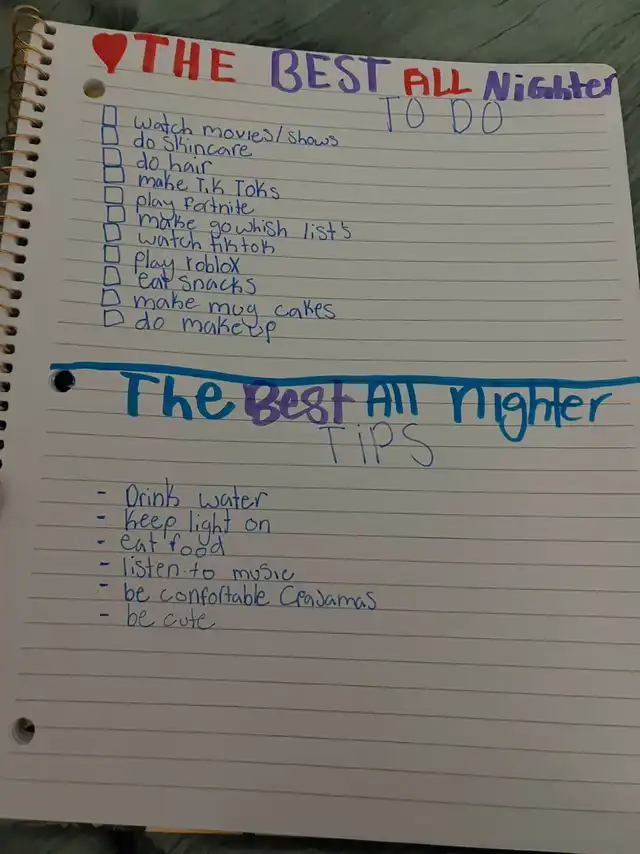 THE BEST ALL Nighter
TO DO
watch movies/shows
do skincare
do hair
make Tik Toks
play fortnite
make gowhish list's
watch tiktok
play roblox
eat snacks
make mug cakes
do makeup
The Best All nighter
TiPS
- Drink water
- keep light on
- eat food
- listen to music
- be confortable (Pajamas
- be cute